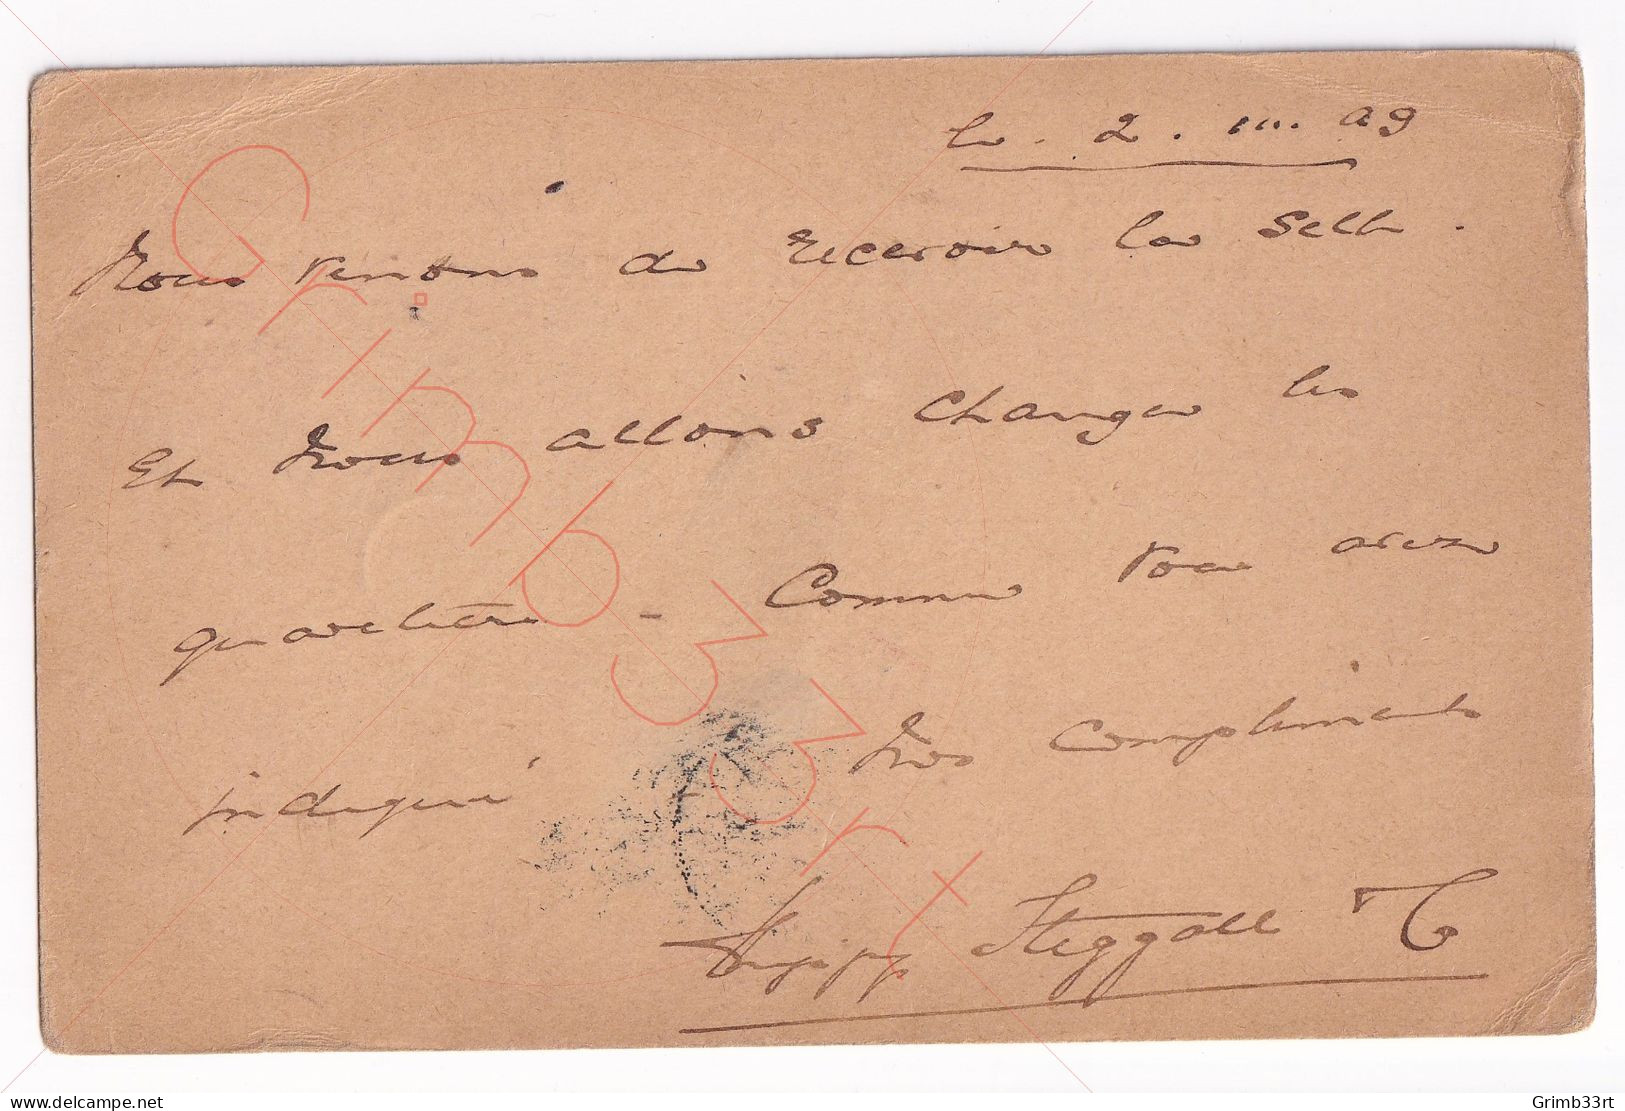 le. 2. III. 09
Nous venons de recevoir la Selle.
Et Nous allons changer les
quartiers - Comme vous avez
indiqué - Nos compliments
Steggall
Grimb33rt
Grimb33rt